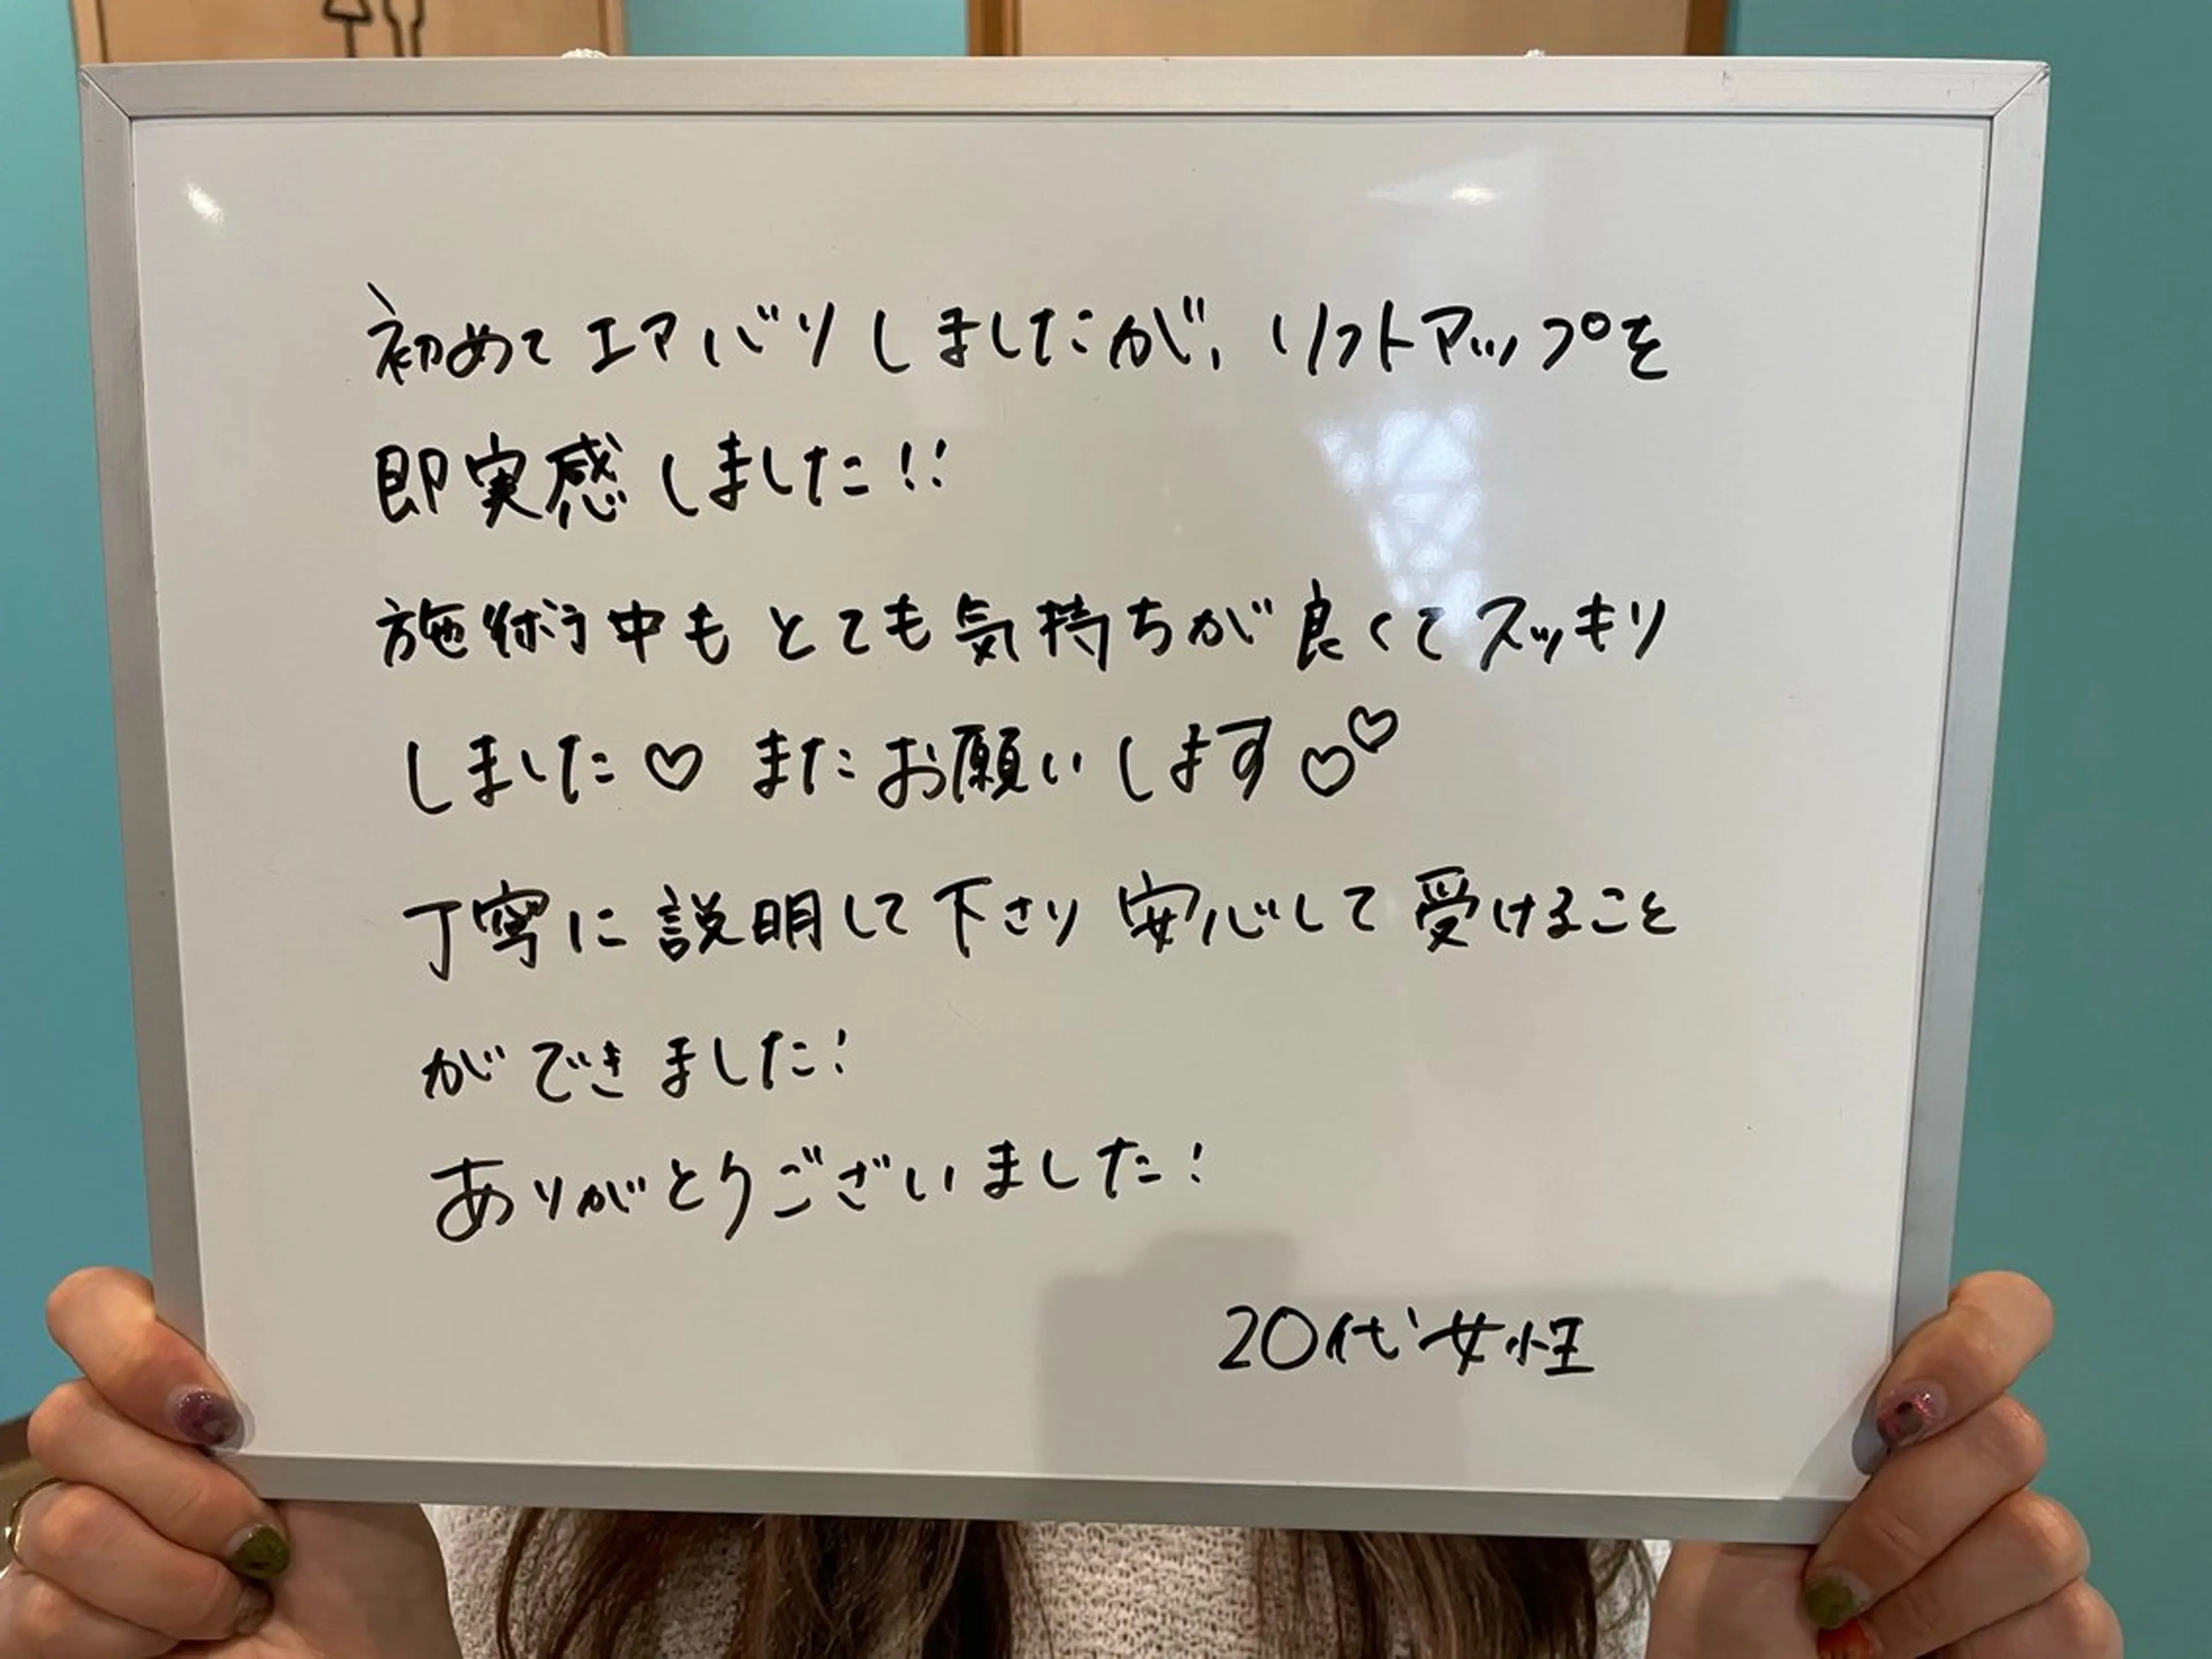 初めてエアバリしましたが、リフトアップを
即実感しました!!
施術中もとても気持ちが良くてスッキリ
しました♡ またお願いします♡♡
丁寧に説明して下さり 安心して受けること
ができました!
ありがとうございました!
20代 女性